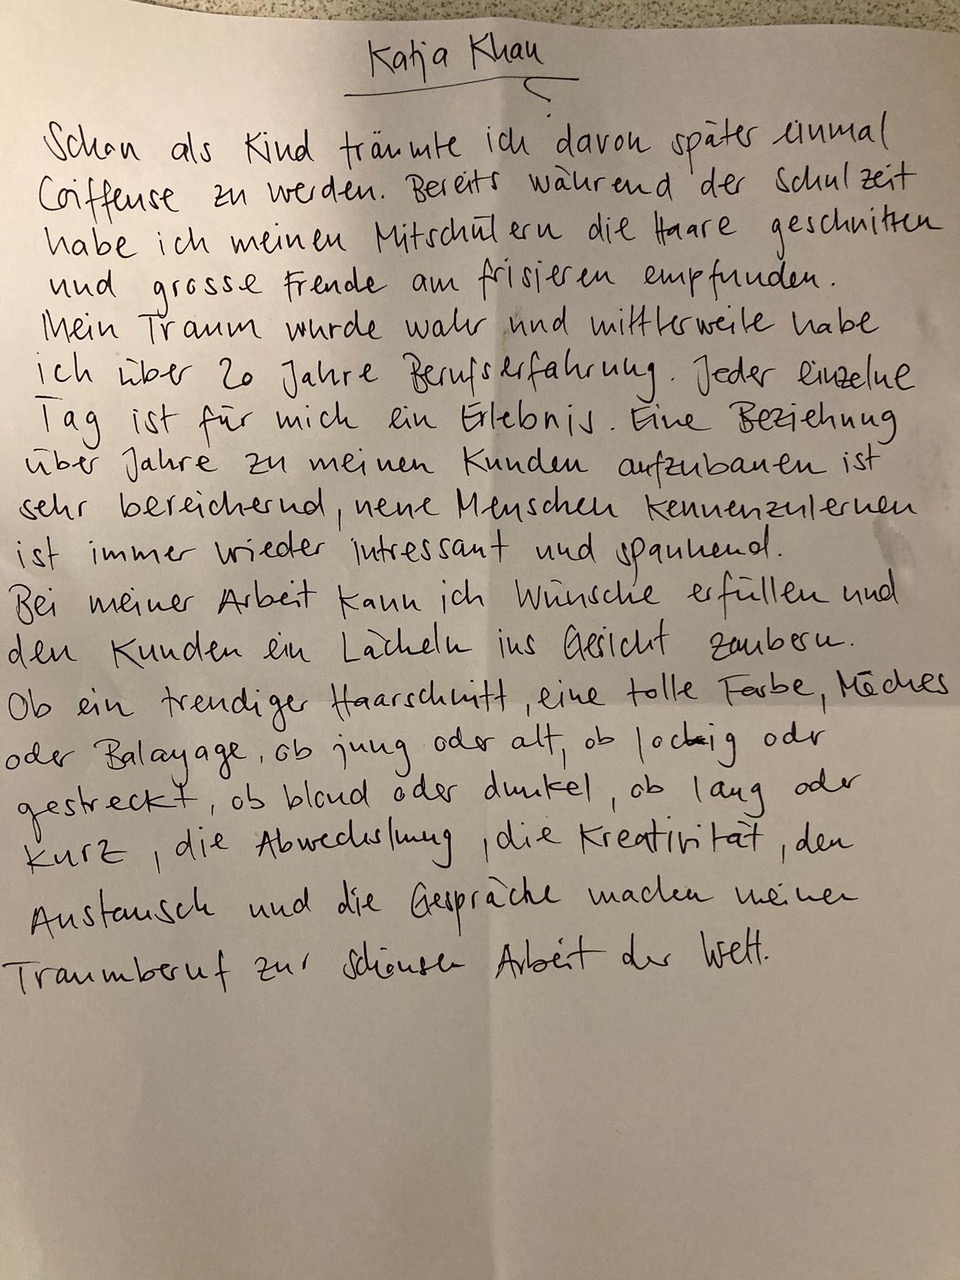 Katja Khan
Schon als Kind träumte ich davon später einmal
Coiffeuse zu werden. Bereits während der Schulzeit
habe ich meinen Mitschülern die Haare geschnitten
und grosse Freude am frisieren empfunden.
Mein Traum wurde wahr und mittlerweile habe
ich über 20 Jahre Berufserfahrung. Jeder einzelne
Tag ist für mich ein Erlebnis. Eine Beziehung
über Jahre zu meinen Kunden aufzubauen ist
sehr bereichernd, neue Menschen kennenzulernen
ist immer wieder intressant und spannend.
Bei meiner Arbeit kann ich Wünsche erfüllen und
den Kunden ein Lächeln ins Gesicht zaubern.
Ob ein trendiger Haarschnitt, eine tolle Farbe, Mèches
oder Balayage, ob jung oder alt, ob lockig oder
gestreckt, ob blond oder dunkel, ob lang oder
kurz, die Abwechslung, die Kreativität, den
Austausch und die Gespräche machen meinen
Traumberuf zur schönsten Arbeit der Welt.